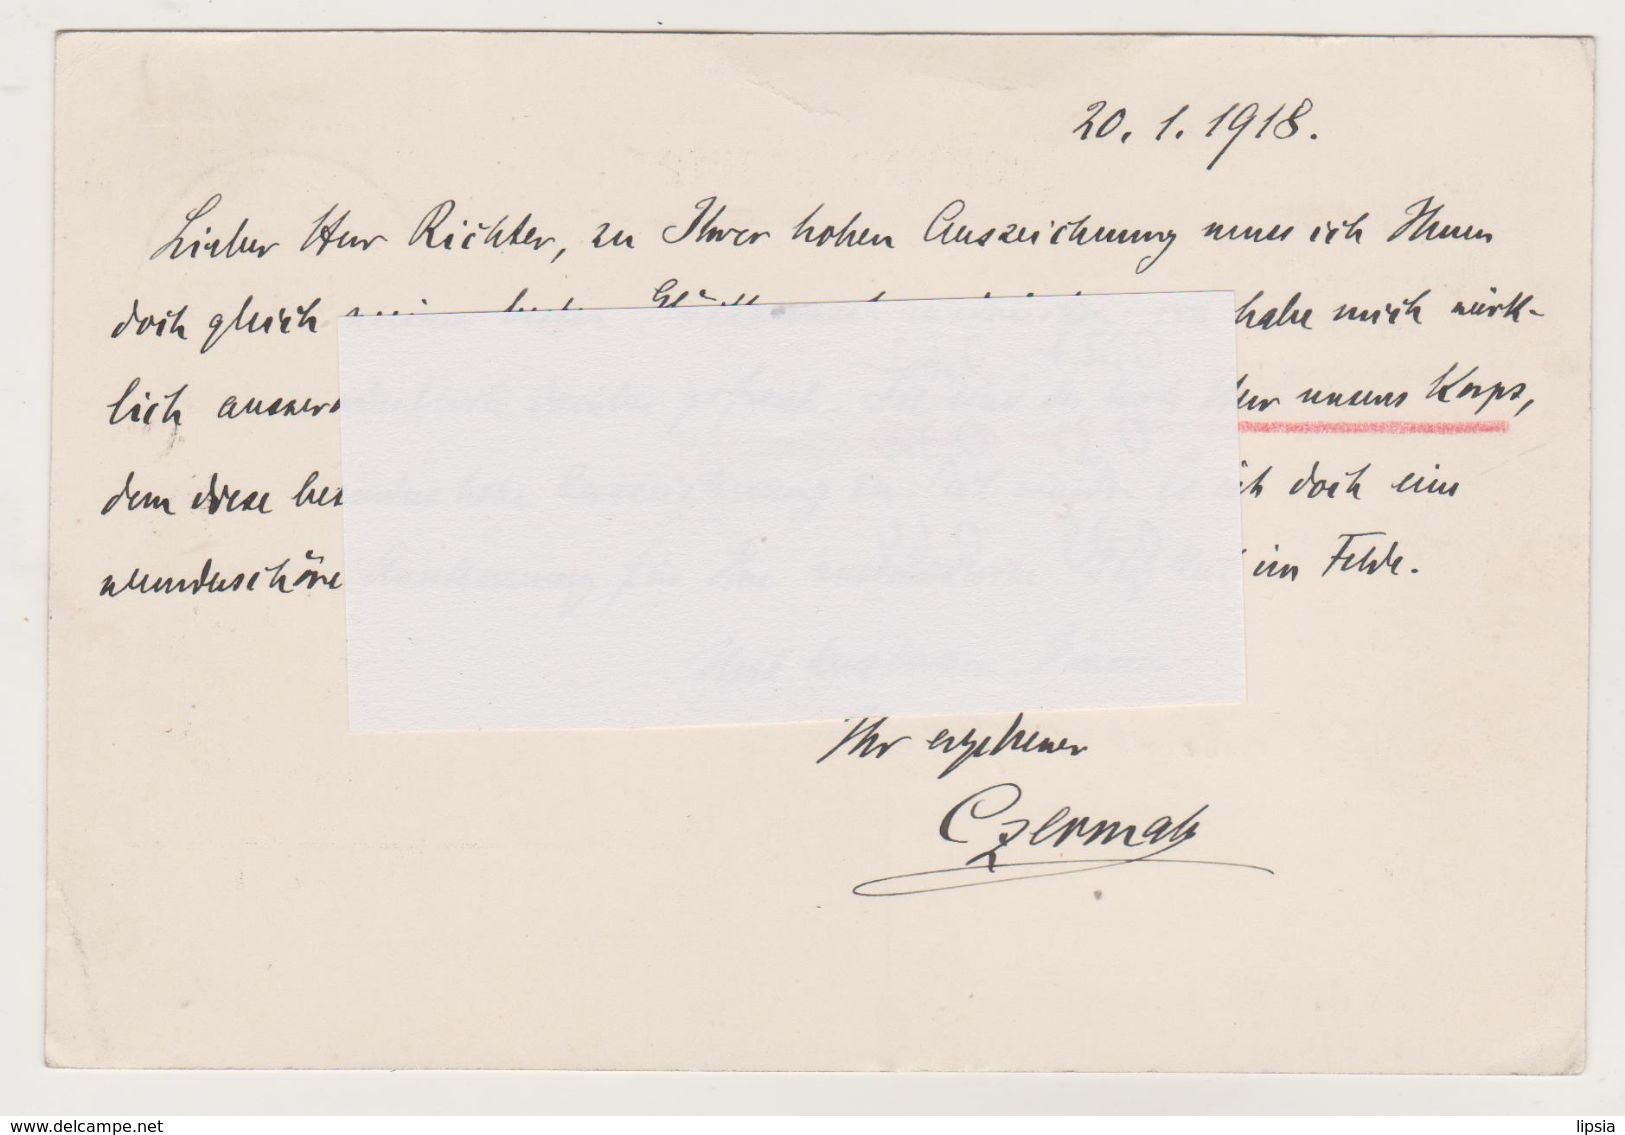 20. 1. 1918.
Lieber Herr Richter, zu Ihrer hohen Auszeichnung muss ich Ihnen
doch gleich habe mich wirk-
lich unseres Korps,
dem diese doch eine
wunderschöne im Felde.
Ihr ergebener
Czermak
www.delcampe.net
lipsia